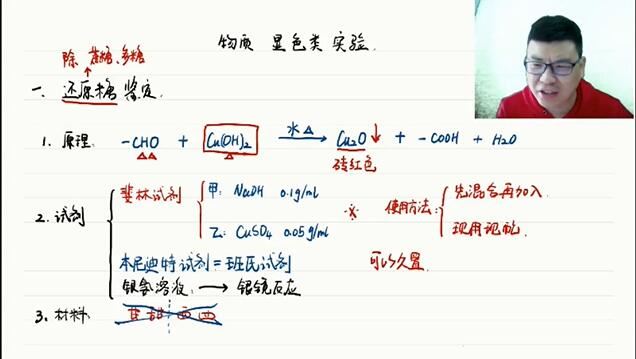 物质 显色类实验.
除 蔗糖、多糖
一、还原糖鉴定.
1. 原理: -CHO + Cu(OH)₂ 水△ Cu₂O↓ + -COOH + H₂O
砖红色
2. 试剂
斐林试剂
甲: NaOH 0.1g/ml
乙: CuSO₄ 0.05g/ml
※ 使用方法:
先混合再加入.
现用现配
本尼迪特试剂=班氏试剂 可以久置.
银氨溶液. → 银镜反应
3. 材料